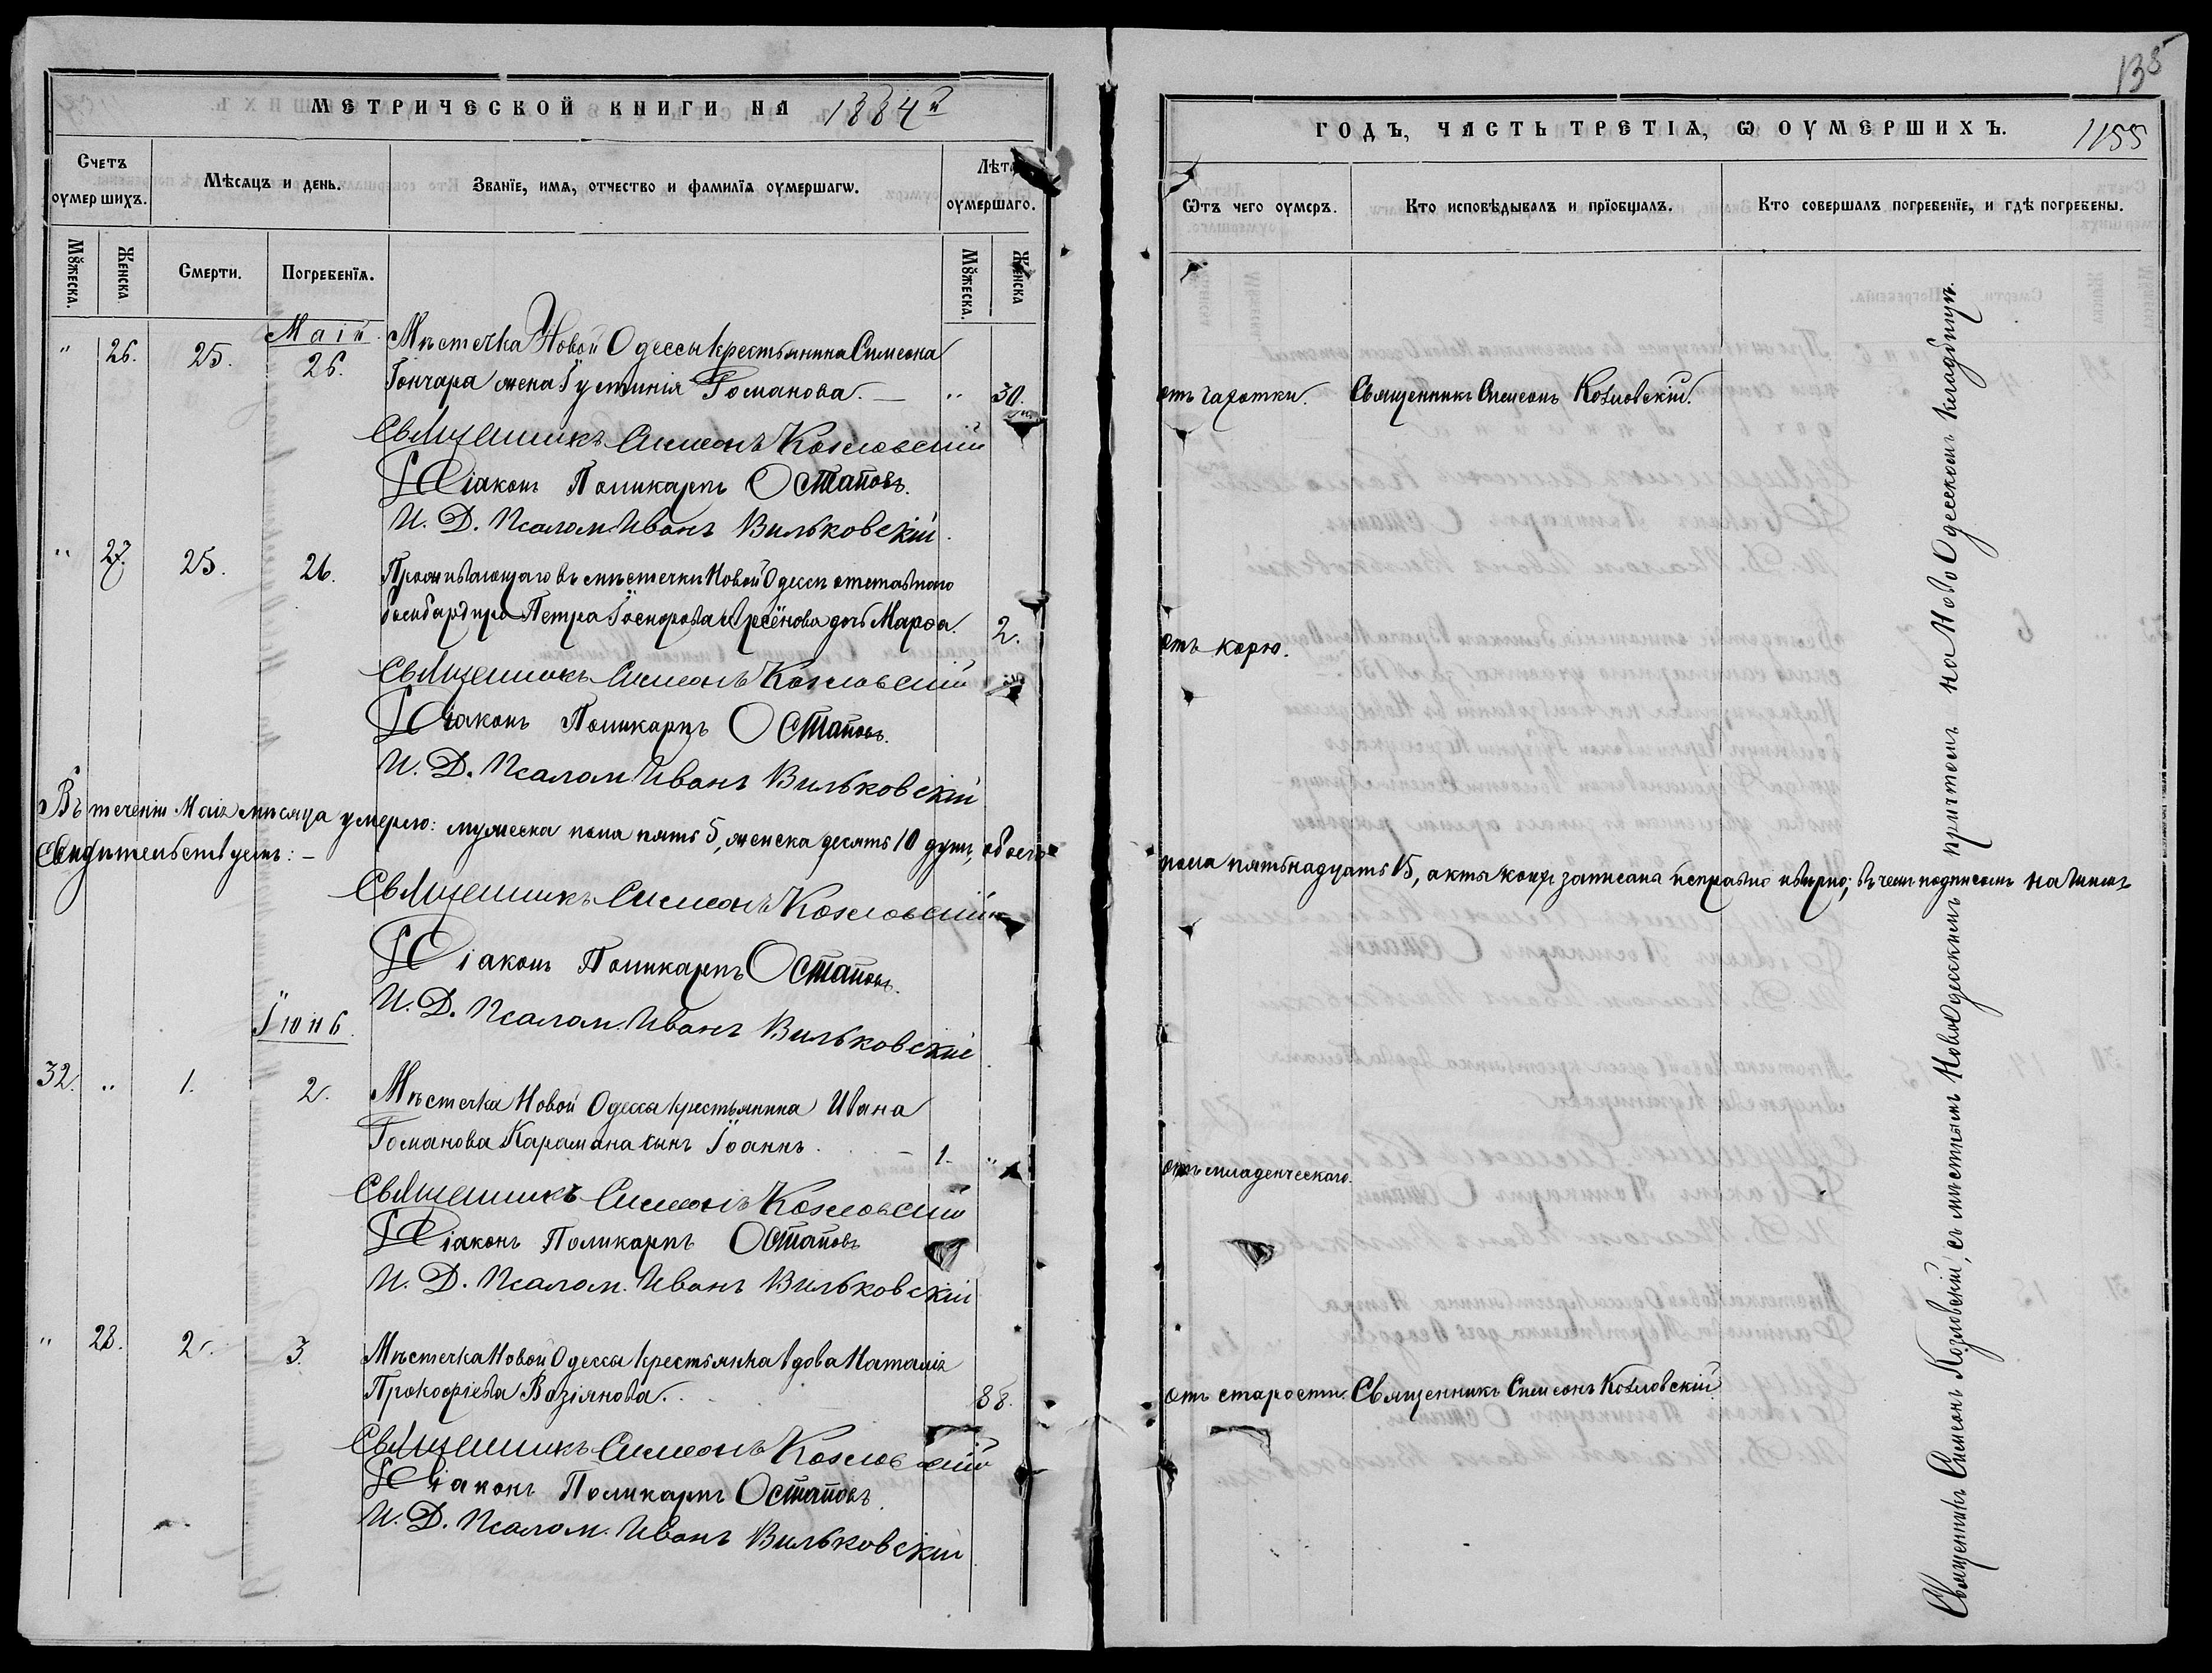 МЕТРИЧЕСКОЙ КНИГИ НА 1884й
Счетъ оумершихъ.
Мѣсяцъ и день.
Званїе, имя, отчество и фамилїя оумершагѡ.
Лѣта оумершаго.
Мꙋжеска.
Женска
Смерти.
Погребенїя.
Мꙋжеска.
Женска
Маій
" 26. 25. 26. Мѣстечка Новой Одессы крестьянина Симеона
Гончара жена Іустинія Романова. — " 30.
Священникъ Симеонъ Козловскій
Діаконъ Поликарпъ Остаповъ.
И. Д. Псалом. Иванъ Вильковскій.
" 27. 25. 26. Проживающаго въ мѣстечки Новой Одессы отставнаго
бомбардира Петра дочь Марѳа. 2.
Священникъ Симеонъ Козловскій
Діаконъ Поликарпъ Остаповъ.
И. Д. Псалом. Иванъ Вильковскій
Въ теченіи Маія мѣсяца умерло: мужеска пола пять 5, женска десять 10 душъ, обоего
свидѣтельствуемъ: –
Священникъ Симеонъ Козловскій
Діаконъ Поликарпъ Остаповъ.
И. Д. Псалом. Иванъ Вильковскій.
Іюнь.
32. " 1. 2. Мѣстечка Новой Одессы крестьянина Ивана
Романова Карамана сынъ Іоаннъ. – 1. "
Священникъ Симеонъ Козловскій
Діаконъ Поликарпъ Остаповъ
И. Д. Псалом. Иванъ Вильковскій
" 28. 2. 3. Мѣстечка Новой Одессы крестьянка вдова Наталія
Прокофіева Вазіянова. 88.
Священникъ Симеонъ Козловскій
Діаконъ Поликарпъ Остаповъ.
И. Д. Псалом. Иванъ Вильковскій.
138
ГОДЪ, ЧАСТЬ ТРЕТІЯ, Ѡ ОУМЕРШИХЪ. 1155
Ѿтъ чего оумеръ.
Кто исповѣдывалъ и прїобщалъ.
Кто совершалъ погребенїе, и гдѣ погребены.
отъ чахотки. Священникъ Симеонъ Козловскій.
отъ корю.
пола пятьнадцать 15, акты коихъ записана исправно и вѣрно; въ чемъ подписомъ нашимъ
отъ младенческаго.
отъ старости. Священникъ Симеонъ Козловскій.
Священникъ Симеонъ Козловскій, съ мѣстнымъ НовоОдесскимъ причтомъ на НовоОдесскомъ кладбищѣ.